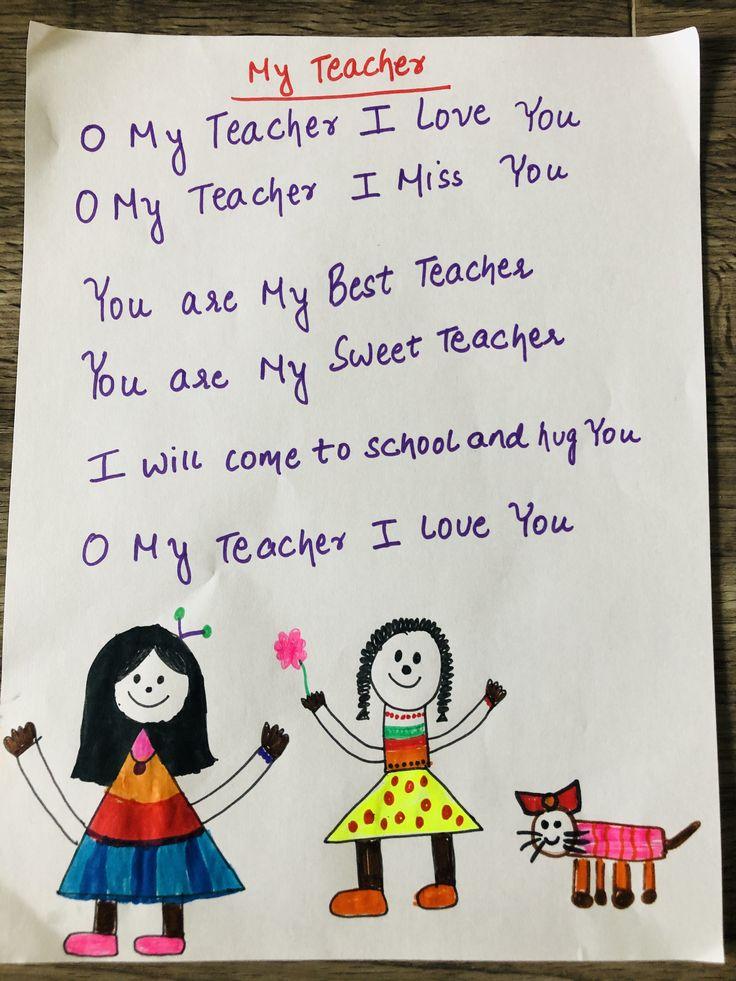 My Teacher
O My Teacher I Love You
O My Teacher I Miss You
You are My Best Teacher
You are My Sweet Teacher
I will come to school and hug You
O My Teacher I Love You